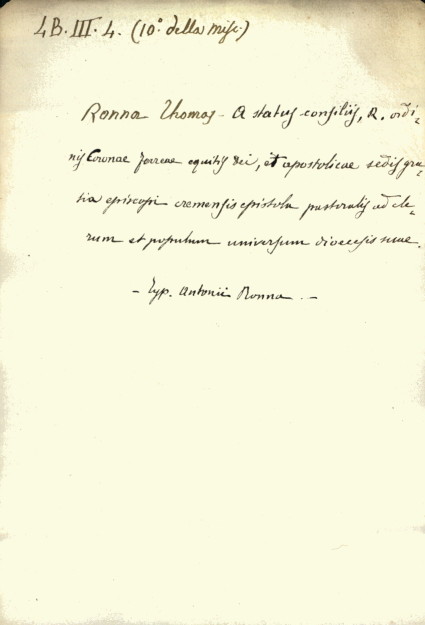 4B.III.4. (10° della misc.)
Ronna Thomas - A status consiliis, R. ordi-
nis Coronae ferreae equitis dei, et apostolicae sedis gra-
tia episcopi cremensis epistola pastoralis ad cle-
rum et populum universum dioecesis suae.
- Typ. Antonii Ronna. -